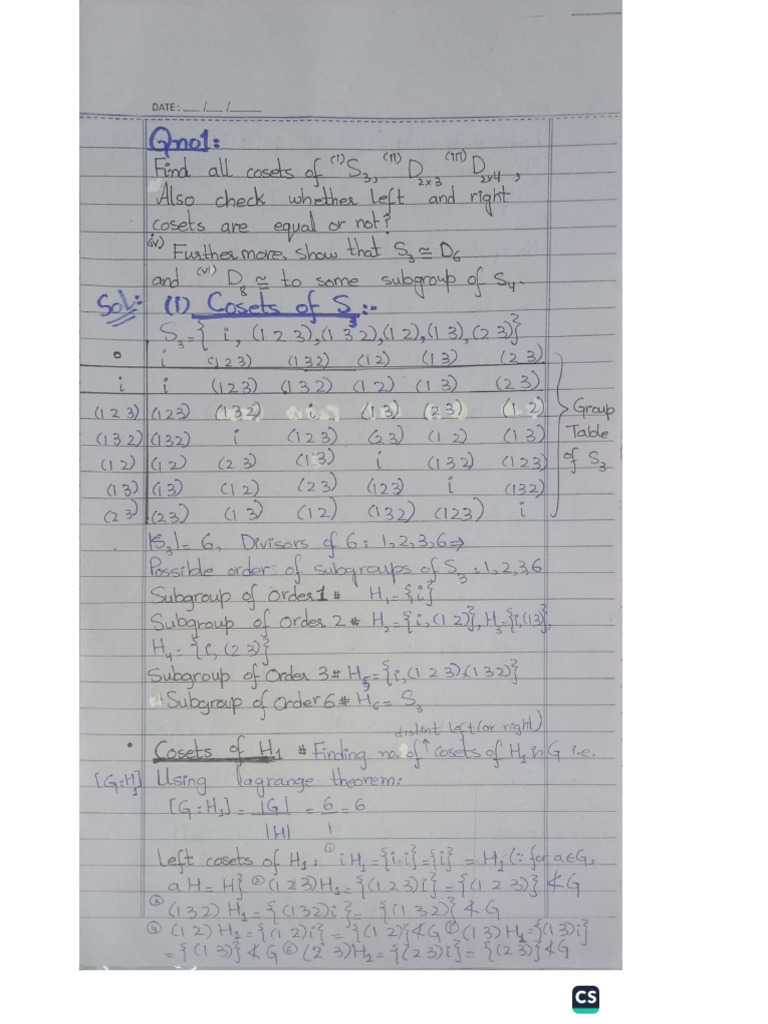 DATE: __/__/____
Qno1:
Find all cosets of (I) S₃, (II) D₂ₓ₃ (III) D₂ₓ₄,
Also check whether left and right
cosets are equal or not?
(iv) Furthermore, show that S₃ ≅ D₆
and (vi) D₈ ≅ to some subgroup of S₄.
Sol:- (I) Cosets of S₃:-
S₃ = { i, (1 2 3), (1 3 2), (1 2), (1 3), (2 3)}
∘ i (123) (132) (12) (13) (23)
i i (123) (132) (12) (13) (23)
(123) (123) (132) i (13) (23) (12) Group
(132) (132) i (123) (23) (12) (13) Table
(12) (12) (23) (13) i (132) (123) of S₃
(13) (13) (12) (23) (123) i (132)
(23) (23) (13) (12) (132) (123) i
|S₃| = 6, Divisors of 6 = 1,2,3,6 ⇒
Possible order of subgroups of S₃ = 1,2,3,6
Subgroup of order 1 # H₁ = {i}
Subgroup of order 2 # H₂ = {i, (1 2)}, H₃ = {i, (13)},
H₄ = {i, (2 3)}
Subgroup of order 3 # H₅ = {i, (1 2 3)(1 3 2)}
Subgroup of order 6 # H₆ = S₃
distent left (or right)
• Cosets of H₁ # Finding no. of ↑ cosets of H₁ in G i.e.
[G:H₁] Using lagrange theorem:
[G:H₁] = |G| = 6 = 6
|H| 1
Left cosets of H₁: ① iH₁ = {i.i} = {i} = H₁ (∵ for a∈G,
aH = H} ② (1 2 3)H₁ = {(1 2 3)i} = {(1 2 3)} ≮ G
③ (1 3 2) H₁ = {(132)i} = {(1 3 2)} ≮ G
④ (1 2) H₁ = {(1 2)i} = {(1 2)} ≮ G ⑤ (1 3) H₁ = {(1 3)i}
= {(1 3)} ≮ G ⑥ (2 3)H₂ = {(2 3)i} = {(2 3)} ≮ G
CS